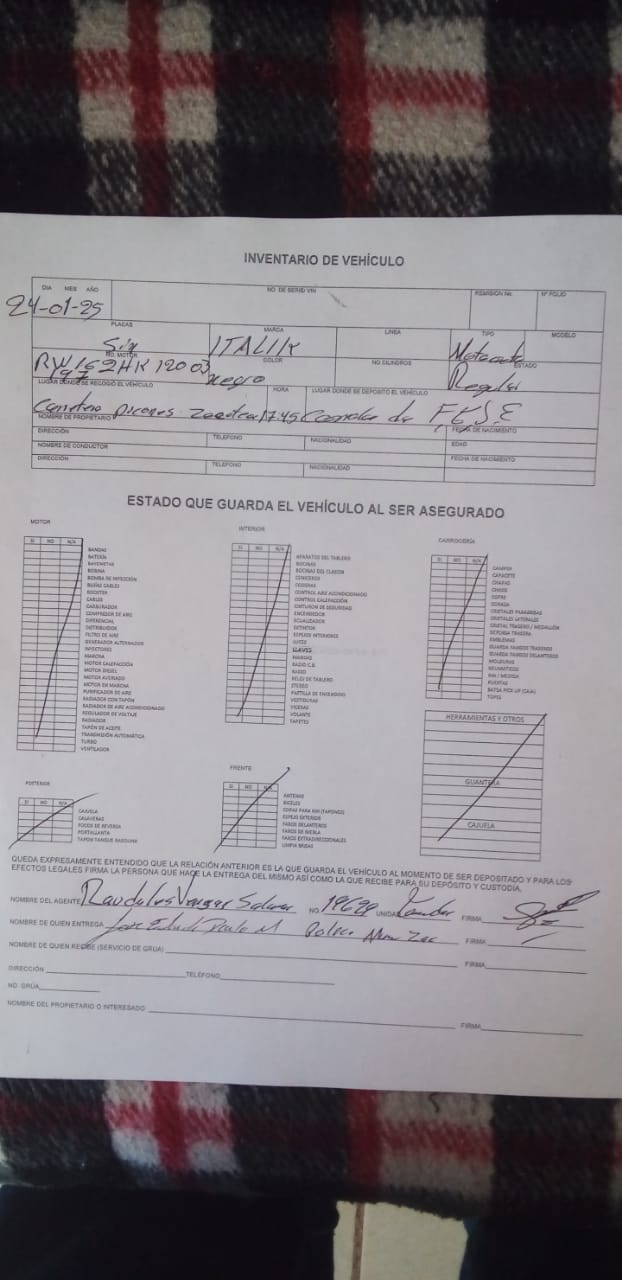 INVENTARIO DE VEHÍCULO
DIA MES AÑO
NO. DE SERIE/ VIN
REMISIÓN No.
Nº FOLIO
24-01-25
PLACAS
MARCA
LINEA
TIPO
MODELO
S/N
ITALIK
NO. MOTOR
COLOR
NO CILINDROS
ESTADO
negro
LUGAR DONDE SE RECOGIÓ EL VEHÍCULO
HORA
LUGAR DONDE SE DEPOSITO EL VEHÍCULO
17:45
NOMBRE DE PROPIETARIO
FECHA DE NACIMIENTO
DIRECCIÓN
TELEFONO
NACIONALIDAD
EDAD
NOMBRE DE CONDUCTOR
FECHA DE NACIMIENTO
DIRECCIÓN
TELEFONO
NACIONALIDAD
ESTADO QUE GUARDA EL VEHÍCULO AL SER ASEGURADO
MOTOR
SI NO N/A
BANDAS
BATERÍA
BAYONETAS
BOBINA
BOMBA DE INYECCIÓN
BUJÍAS CABLES
BOOSTER
CABLES
CARBURADOR
COMPRESOR DE AIRE
DIFERENCIAL
DISTRIBUIDOR
FILTRO DE AIRE
GENERADOR ALTERNADOR
INYECTORES
MARCHA
MOTOR CALEFACCIÓN
MOTOR DIESEL
MOTOR AVERIADO
MOTOR EN MARCHA
PURIFICADOR DE AIRE
RADIADOR CON TAPÓN
RADIADOR DE AIRE ACONDICIONADO
REGULADOR DE VOLTAJE
RADIADOR
TAPÓN DE ACEITE
TRANSMISIÓN AUTOMÁTICA
TURBO
VENTILADOR
INTERIOR
SI NO N/A
APARATOS DEL TABLERO
BOCINAS
BOCINAS DEL CLAXON
CENICEROS
CONTROL AIRE ACONDICIONADO
CONTROL CALEFACCIÓN
CINTURON DE SEGURIDAD
ENCENDEDOR
ECUALIZADOR
EXTINTOR
ESPEJOS INTERIORES
LUCES
LLAVES
MANIJAS
RADIO C.B
RADIO
RELOJ DE TABLERO
ESTEREO
PASTILLA DE ENCENDIDO
VESTIDURAS
VICERAS
VOLANTE
TAPETES
CARROCERÍA
SI NO N/A
CAMPER
CAPACETE
CHAPAS
COFRE
CRISTALES PARABRISAS
CRISTALES LATERALES
CRISTAL TRASERO / MEDALLÓN
DEFENSA TRASERA
EMBLEMAS
GUARDA FANGOS TRASEROS
GUARDA FANGOS DELANTEROS
MOLDURAS
NEUMATICOS
RIN / MEDIDA
PUERTAS
BATEA PICK UP (CAJA)
TOPES
HERRAMIENTAS Y OTROS
GUANTERA
CAJUELA
POSTERIOR
SI NO N/A
CAJUELA
CALAVERAS
FOCOS DE REVERSA
PORTALLANTA
TAPON TANQUE GASOLINA
FRENTE
SI NO N/A
ANTENAS
BICELES
COPAS PARA RIN (TAPONES)
ESPEJO EXTERIOR
FAROS DELANTEROS
FAROS DE NIEBLA
FAROS EXTRADIRECCIONALES
LIMPIA BRISAS
QUEDA EXPRESAMENTE ENTENDIDO QUE LA RELACIÓN ANTERIOR ES LA QUE GUARDA EL VEHÍCULO AL MOMENTO DE SER DEPOSITADO Y PARA LOS
EFECTOS LEGALES FIRMA LA PERSONA QUE HACE LA ENTREGA DEL MISMO ASÍ COMO LA QUE RECIBE PARA SU DEPÓSITO Y CUSTODIA.
NOMBRE DEL AGENTE Vargas NO. UNIDAD FIRMA
NOMBRE DE QUIEN ENTREGA José FIRMA
NOMBRE DE QUIEN RECIBE (SERVICIO DE GRUA) FIRMA
DIRECCIÓN TELÉFONO
NO GRÚA
NOMBRE DEL PROPIETARIO O INTERESADO FIRMA